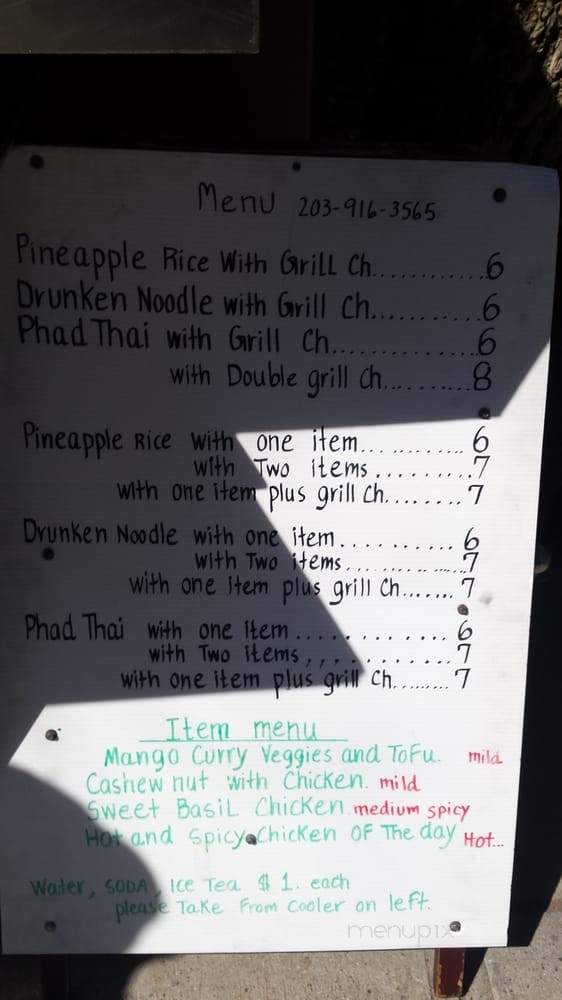 Menu 203-916-3565
Pineapple Rice With Grill Ch............6
Drunken Noodle with Grill Ch...........6
Phad Thai with Grill Ch..............6
with Double grill Ch..........8
Pineapple Rice with one item............6
with Two items..........7
with one item plus grill Ch........7
Drunken Noodle with one item...........6
with Two items..............7
with one item plus grill Ch.......7
Phad Thai with one Item..............6
with Two items, , , ...........7
with one item plus grill Ch.........7
Item menu
Mango Curry Veggies and ToFu. mild
Cashew nut with Chicken. mild
Sweet Basil Chicken medium spicy
Hot and Spicy Chicken OF The day Hot...
Water, SODA, Ice Tea $ 1. each
please Take From Cooler on left.
menupix